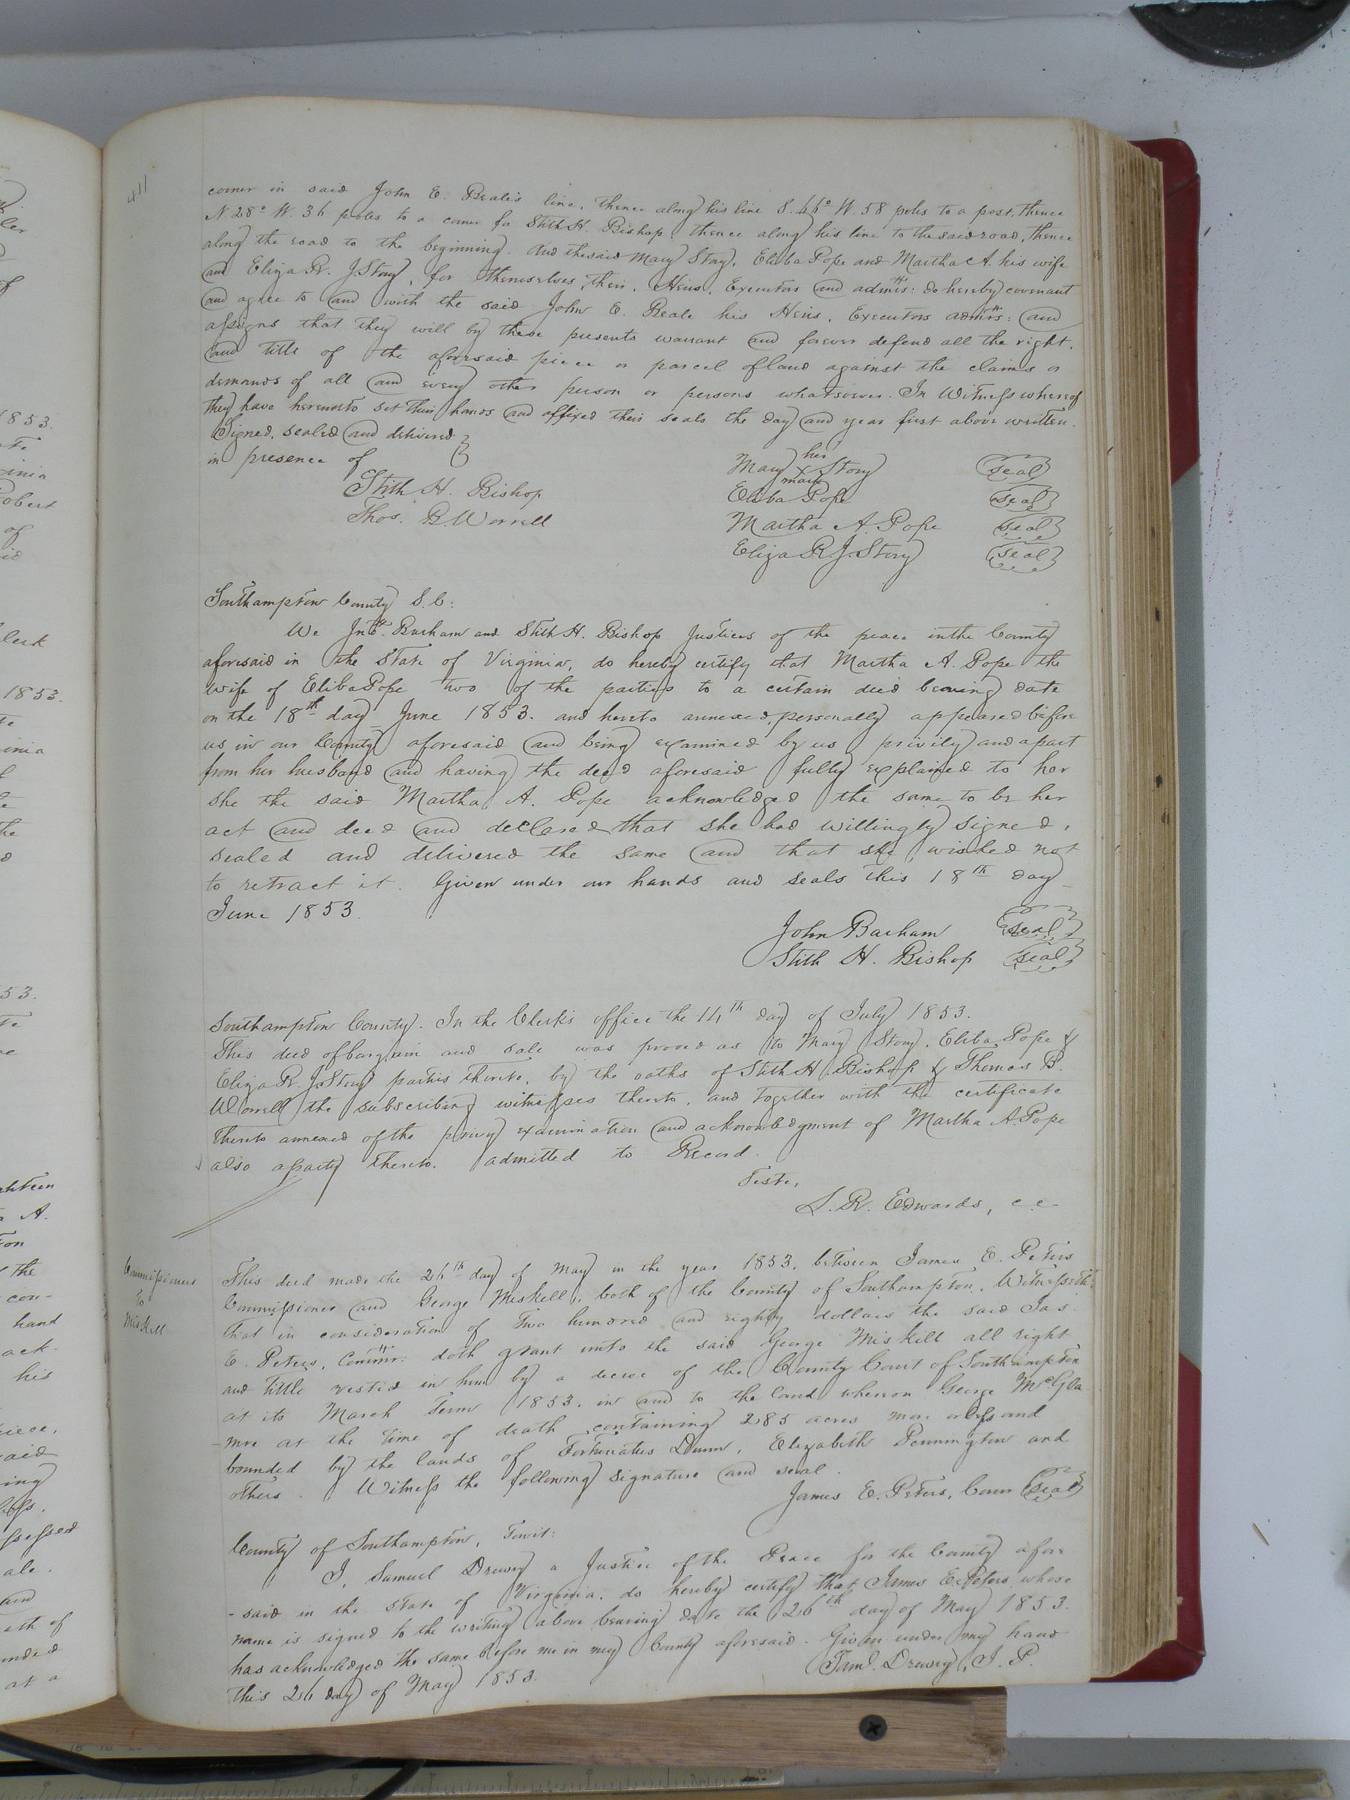 411
corner in said John E. Beale's line, thence along his line S. 46° W. 58 poles to a post, thence
N. 28° W. 36 poles to a corner for Stith H. Bishop, thence along his line to the said road, thence
along the road to the beginning. And the said Mary Story, Eliba Pope and Martha A. his wife
and Eliza R. J. Story, for themselves, their, Heirs, Executors and admrs: do hereby covenant
and agree to and with the said John E. Beale his Heirs, Executors admrs: and
assigns that they will by these presents warrant and forever defend all the right,
and title of the aforesaid piece or parcel of land against the claims or
demands of all and every other person or persons whatsoever. In Witness whereof
they have hereunto set their hands and affixed their seals the day and year first above written.
Signed, sealed and delivered
in presence of
Stith H. Bishop
Thos. B. Worrell
Mary her x mark Story seal
Eliba Pope seal
Martha A. Pope seal
Eliza R J. Story seal
Southampton County S. C:
We Jno. Barham and Stith H. Bishop Justices of the peace in the County
aforesaid in the State of Virginia, do hereby certify that Martha A. Pope the
wife of Eliba Pope two of the parties to a certain deed bearing date
on the 18th day June 1853. and hereto annexed, personally appeared before
us in our County aforesaid and being examined by us privily and apart
from her husband and having the deed aforesaid fully explained to her
she the said Martha A. Pope acknowledged the same to be her
act and deed and declared that she had willingly signed,
sealed and delivered the same and that she wished not
to retract it. Given under our hands and seals this 18th day
June 1853.
John Barham seal
Stith H. Bishop seal
Southampton County. In the Clerk's office the 14th day of July 1853.
This deed of bargain and sale was proved as to Mary Story, Eliba Pope &
Eliza R. J. Story parties thereto, by the oaths of Stith H Bishop & Thomas B.
Worrell the subscribing witnesses thereto, and together with the certificate
thereto annexed of the privy examination and acknowledgment of Martha A. Pope
also a party thereto, admitted to Record.
Teste,
L. R. Edwards, c c
Commissioner
to
Miskill
This deed made the 26th day of May in the year 1853, between James E. Peters
Commissioner and George Miskell, both of the County of Southampton, Witnesseth:
that in consideration of Two hundred and eighty dollars the said Jas.
E. Peters, Commr: doth grant unto the said George Miskell all right
and title vested in him by a decree of the County Court of Southampton
at its March Term 1853. in and to the land whereon George McGla
-mre at the time of death containing 285 acres more or less and
bounded by the lands of Fortunatus Dunn, Elizabeth Pennington and
others. Witness the following signature and seal.
James E. Peters, Comr seal
County of Southampton, Towit:
I, Samuel Drewry a Justice of the Peace for the County afore
-said in the state of Virginia, do hereby certify that James E. Peters whose
name is signed to the writing above bearing date the 26th day of May 1853.
has acknowledged the same before me in my County aforesaid. Given under my hand
this 26 day of May 1853.
Saml. Drewry, J. P.